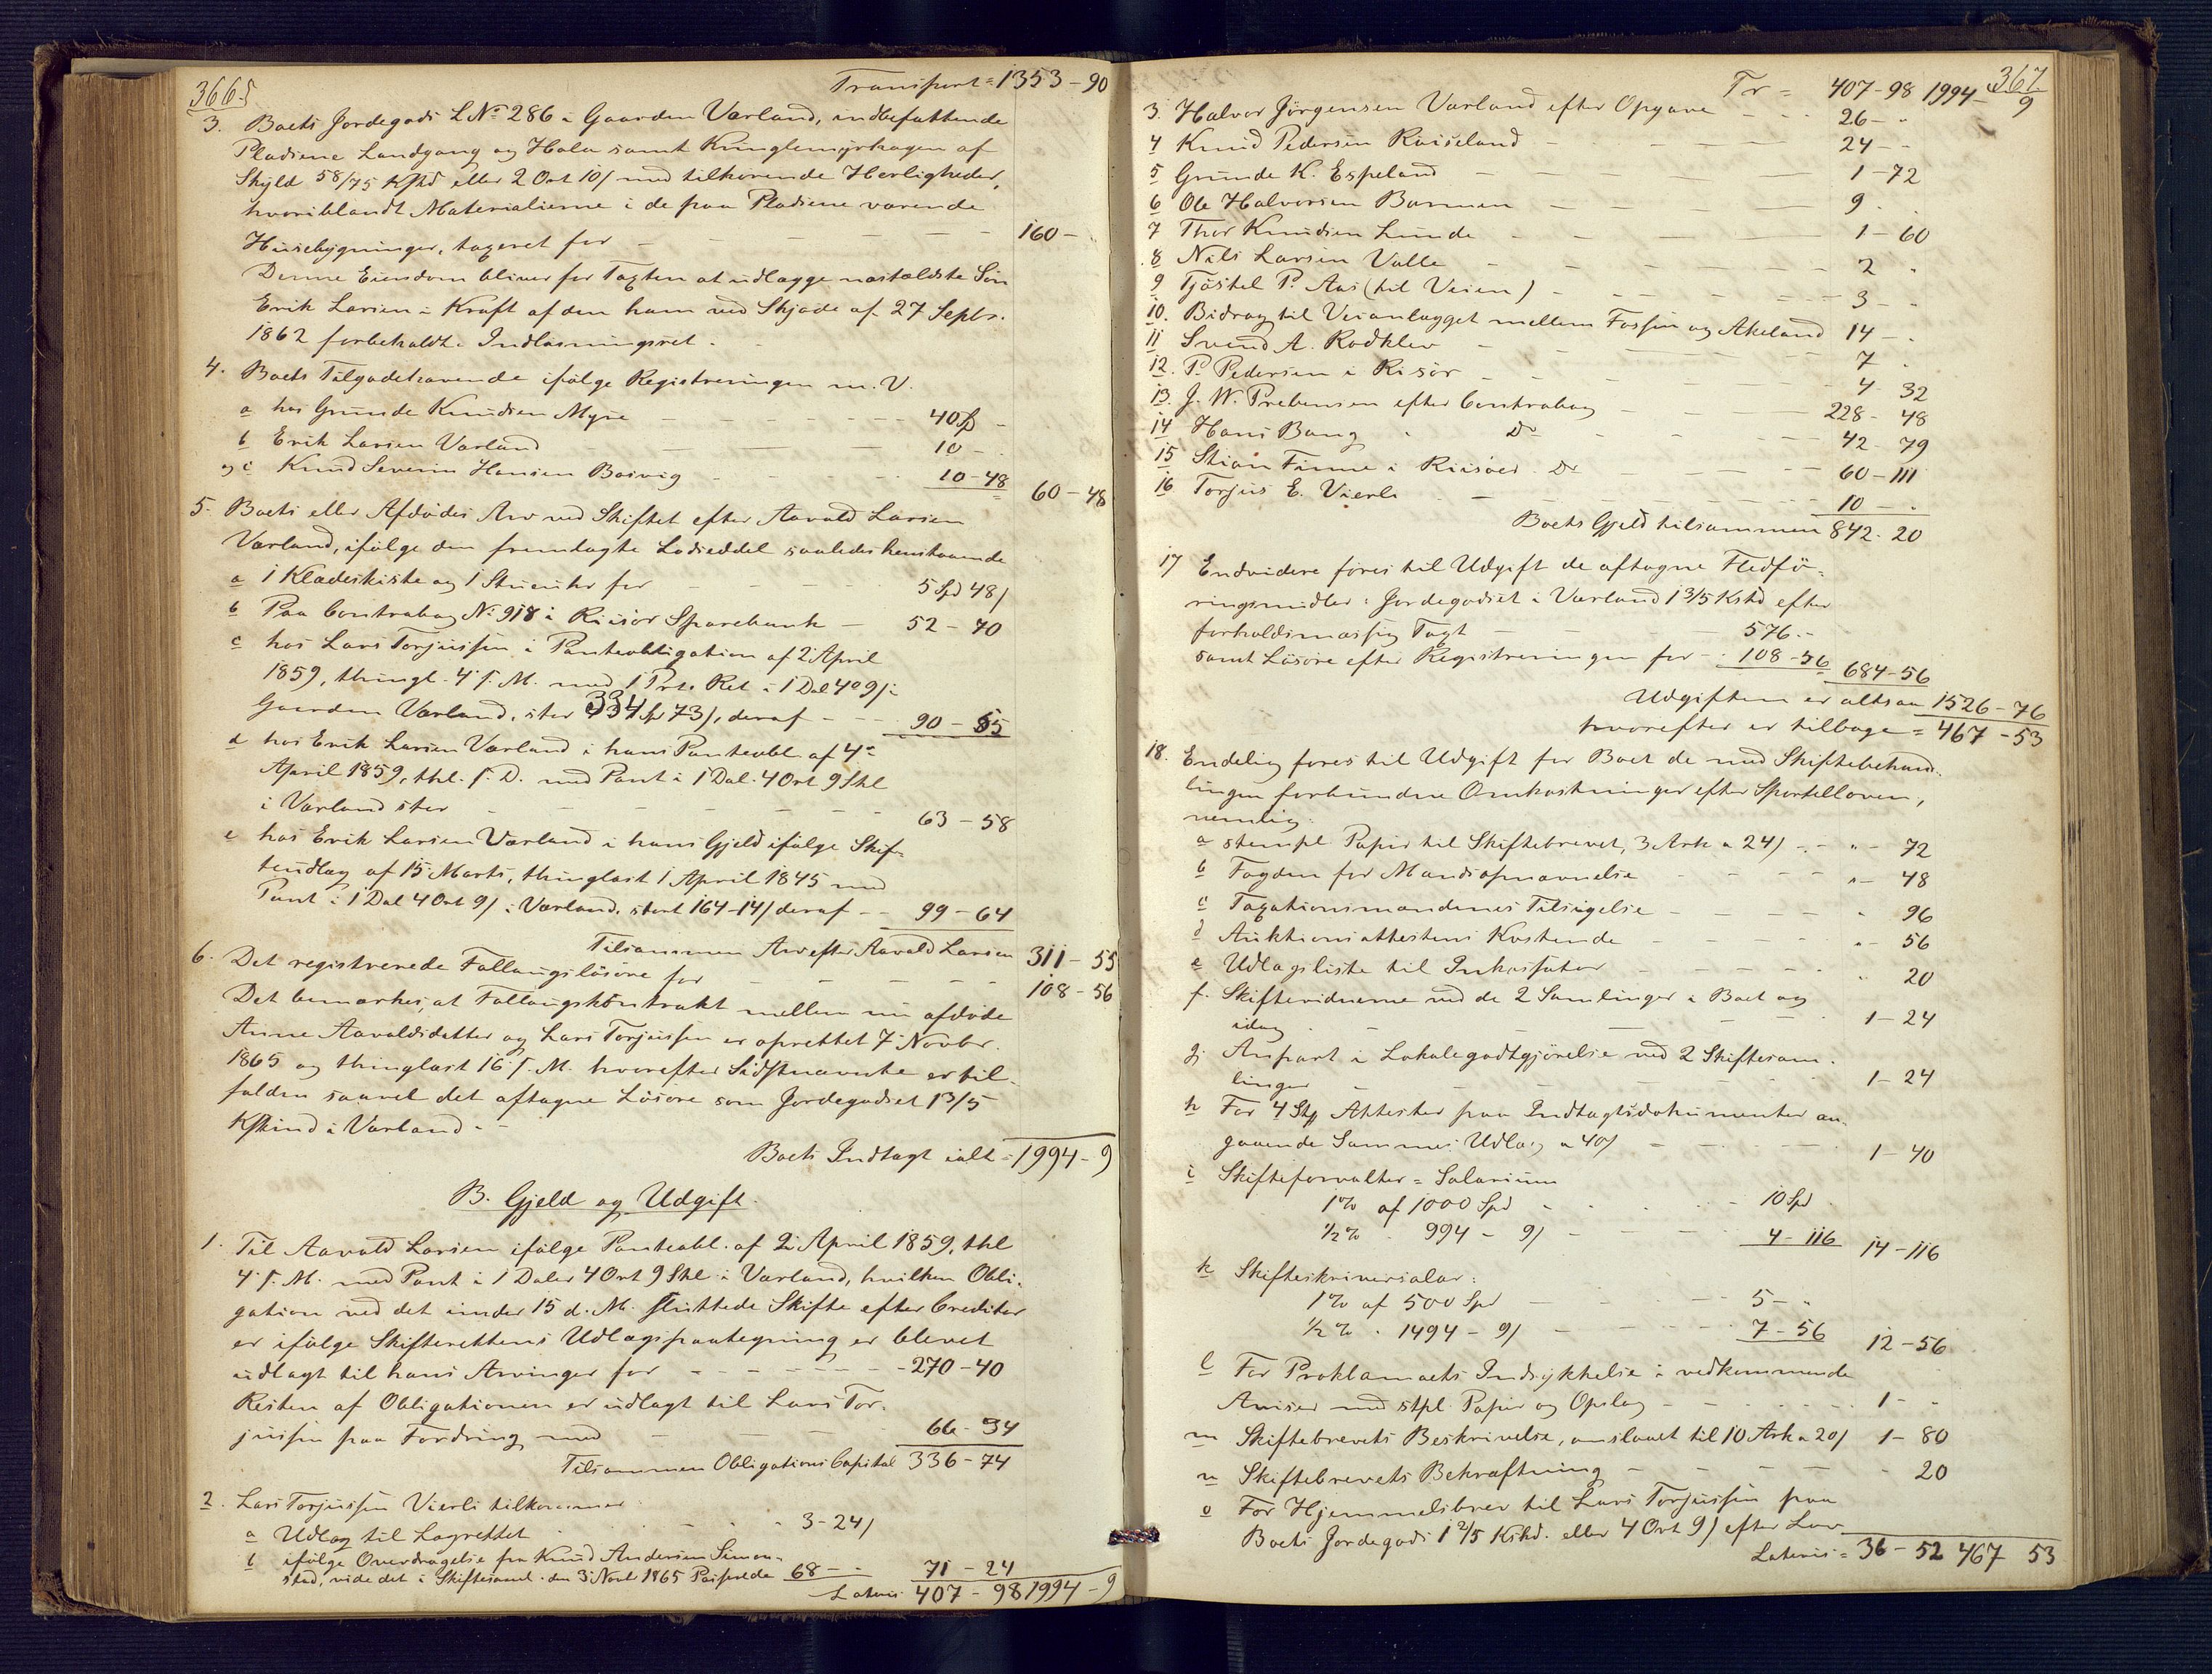 366.
Transport = 1353 - 90
3. Boets Jordegods L.No 286 i Gaarden Varland, indbefattende
Pladsene Landgang og Hola samt Kringlemyrhagen af
Skyld 58/75 Kshd eller 2 Ort 10/ med tilhørende Herligheder,
hvoriblandt Materialierne i de paa Pladsene værende
Husebygninger, taxeret for 160 -
Denne Eiendom bliver for Taxten at udlægge næstældste Søn
Erik Larsen i Kraft af den ham ved Skjøde af 27 Septbr.
1862 forbeholdte Indløsningsret.
4. Boets Tilgodehavende ifølge Registreringen m. V.
a hos Grunde Knudsen Myre 40 Sp -
b Erik Larsen Varland 10 -
og c Knud Severin Hansen Bosvig 10 - 48 60 - 48
5. Boets eller Afdødes Arv ved Skiftet efter Aavald Larsen
Varland, ifølge den fremlagte Lodseddel saaledes henstaaende
a 1 Klædeskiste og 1 Stueuhr for 5 Spd 48/
b Paa Contrabog No 918 i Riisør Sparebank 52 - 70
c hos Lars Torjussen i Panteobligation af 2 April
1859, thingl. 4 s. M. med 1 Prt. Ret i 1 Dal. 4 o 9/ i
Gaarden Varland, stor 334 Sp 73/, deraf 90 - 55
d hos Erik Larsen Varland i hans Panteobl. af 4de
April 1859, thl. s. D. med Pant i 1 Dal. 4 Ort 9 Skl
i Varland stor 63 - 58
e hos Erik Larsen Varland i hans Gjeld ifølge Skif-
teudlæg af 15 Marts, thinglæst 1 April 1845 med
Pant i 1 Dal 4 Ort 9/ i Varland, stort 164 - 14/ deraf 99 - 64
Tilsammen Arv efter Aavald Larsen 311 - 55
6. Det registrerede Follaugsløsøre for 108 - 56
Det bemærkes, at Follaugskontrakt mellem nu afdøde
Anne Aavaldsdatter og Lars Torjussen er oprettet 7 Novbr.
1865 og thinglæst 16 s. M. hvorefter Sidstnævnte er til-
falden saavel det aftagne Løsøre som Jordegodset 1 3/5
Kskind i Varland.
Boets Indtægt ialt = 1994 - 9
B. Gjeld og Udgift.
1. Til Aavald Larsen ifølge Panteobl. af 2 April 1859, thl
4 s. M. med Pant i 1 Daler 4 Ort 9 Skl i Varland, hvilken Obli-
gation ved det under 15 d. M. sluttede Skifte efter Creditor
er ifølge Skifterettens Udlægspaategning er blevet
udlagt til hans Arvinger for 270 - 40
Resten af Obligationen er udlagt til Lars Tor-
jussen paa Fordring med 66 - 34
Tilsammen Obligations Capital 336 - 74
2. Lars Torjussen Vierli tilkommer
a Udlæg til Lagrettet 3 - 24/
b ifølge Overdragelse fra Knud Andersen Simon-
stad, vide det i Skiftesaml. den 3 Novb 1865 68 - 71 - 24
Lateris 407 - 98 1994 - 9
367.
Tr = 407 - 98 1994 - 9
3. Halvor Jørgensen Varland efter Opgave 26 -
4 Knud Pedersen Riseland 24 -
5 Grunde K. Espeland 1 - 72
6 Ole Halvorsen Barmen 9 -
7 Thor Knudsen Lunde 1 - 60
8 Nils Larsen Valle 2 -
9 Tjøstel P. Aas (til Veien) 3 -
10. Bidrag til Veianlægget mellem Fossen og Akeland 14 -
11 Svend A. Rødklev 7 -
12. P. Pedersen i Risør 4 32
13. J. W. Prebensen efter Contrabog 228 - 48
14 Hans Bang Do 42 - 79
15 Stian Finne i Riisøer Do 60 - 111
16 Torjus E. Vierli 10 -
Boets Gjeld tilsammen 842 - 20
17 Endvidere føres til Udgift de aftagne Fledfø-
ringsmidler: Jordegodset i Varland 1 3/5 Kshd efter
forholdsmæssig Taxt 576 -
samt Løsøre efter Registreringen for 108 - 56 684 - 56
Udgiften er altsaa 1526 - 76
hvorefter er tilbage = 467 - 53
18. Endelig føres til Udgift for Boet de med Skiftebehand-
lingen forbundne Omkostninger efter Sportelloven,
nemlig:
a stempl. Papir til Skiftebrevet, 3 Ark a 24/ " - 72
b Fogden for Mandsopnævnelse " - 48
c Taxationsmændenes Tilsigelse " 96
d Auktionsattestens Kostende " - 56
e Udlægsliste til Inkassator " 20
f. Skiftevidnerne ved de 2 Samlinger i Boet og
idag 1 - 24
g Anpart i Lokalegodtgjørelse ved 2 Skiftesam-
linger 1 - 24
h For 4 Stk Attester paa Indtægtsdokumenter an-
gaaende Sammes Udlæg a 40/ 1 - 40
i Skifteforvalter = Salarium
1% af 1000 Spd 10 Spd
1/2 % - 994 - 9/ 4 - 116 14 - 116
k Skifteskriversalar:
1% af 500 Spd 5 - "
1/2 % - 1494 - 9/ 7 - 56 12 - 56
l For Proklamaets Indrykkelse i vedkommende
Aviser med stpl. Papir og Opslag 1 -
m Skiftebrevets Beskrivelse, anslaaet til 10 Ark a 20/ 1 - 80
n Skiftebrevets Bekræftning 20
o For Hjemmelsbrev til Lars Torjussen paa
Boets Jordegods 1 2/5 Kshd. eller 4 Ort 9/ efter Lov
Lateris = 36 - 52 467 53